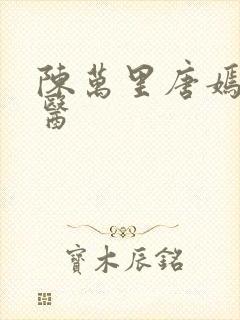 陳萬里唐嫣
醫
寶木辰銘